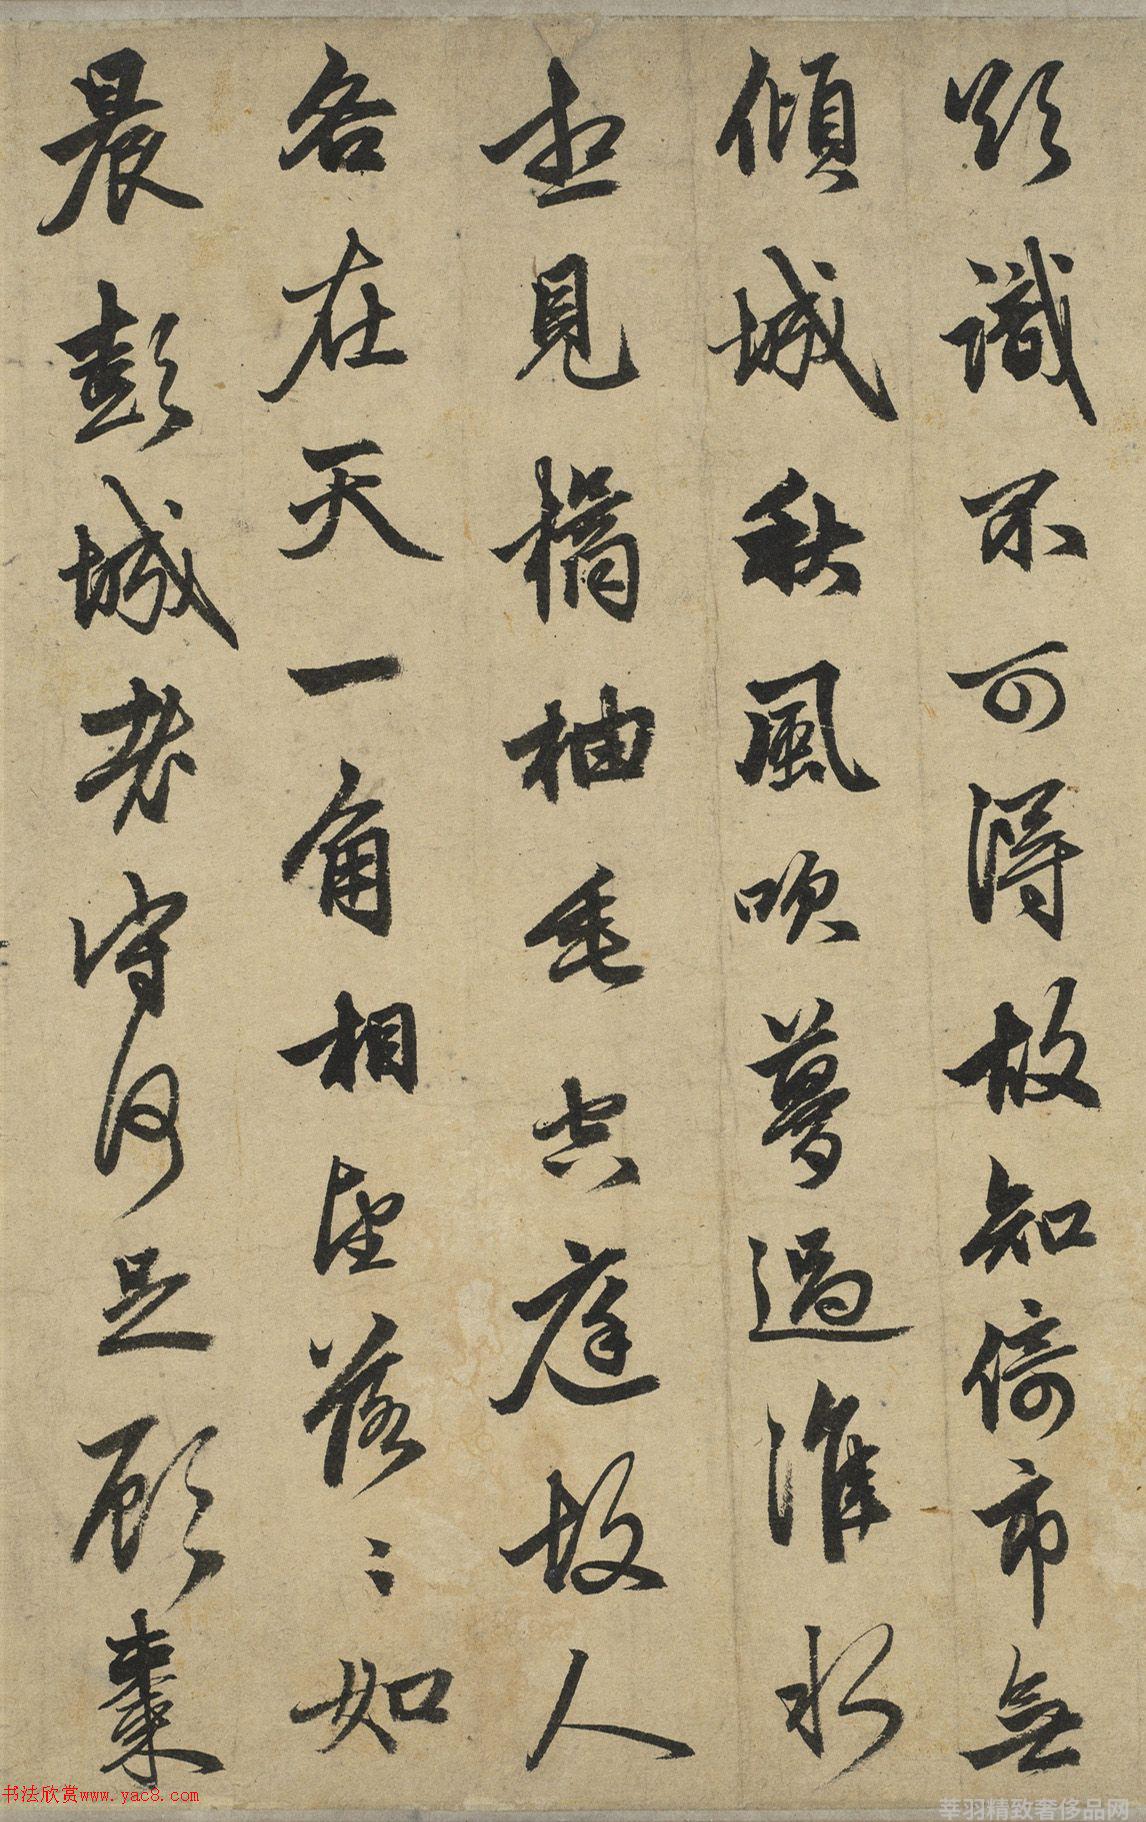 欲識不可得故知倚市無
傾城秋風吹夢過淮水
想見橘柚垂空庭故人
各在天一角相望落〻如
晨彭城老守何足顧棗
书法欣赏www.yac8.com
莘羽精致奢侈品网